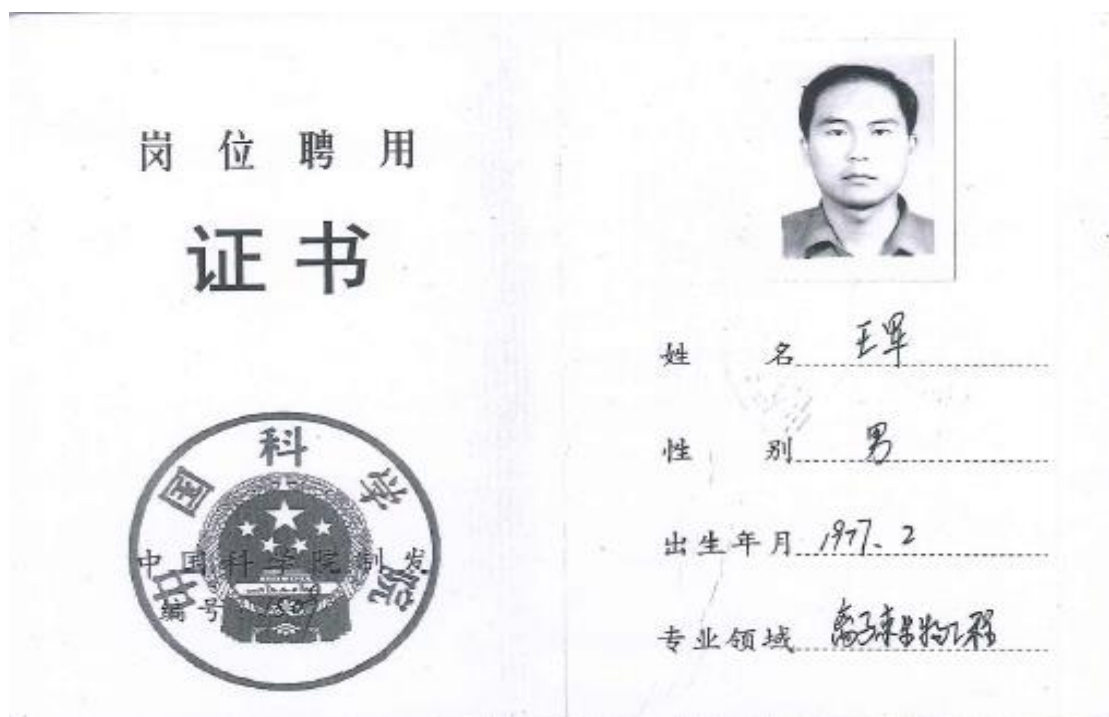 岗位聘用
证书
中国科学院
中国科学院制发
编号
姓名 王军
性别 男
出生年月 1977.2
专业领域 离子束生物工程